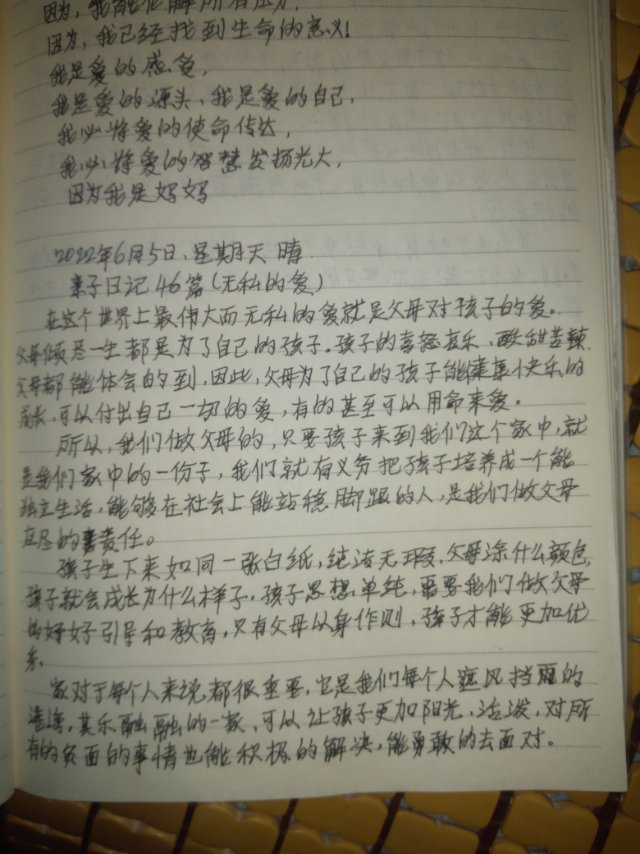 因为，我能化解所有压力，
因为，我已经找到生命的意义！
我是爱的感受，
我是爱的源头、我是爱的自己，
我必将爱的使命传达，
我必将爱的智慧发扬光大，
因为我是妈妈
2022年6月5日、星期天 晴
亲子日记46篇（无私的爱）
在这个世界上最伟大而无私的爱就是父母对孩子的爱。
父母倾尽一生都是为了自己的孩子。孩子的喜怒哀乐、酸甜苦辣
父母都能体会的到，因此，父母为了自己的孩子能健康快乐的
成长，可以付出自己一切的爱，有的甚至可以用命来爱。
所以，我们做父母的，只要孩子来到我们这个家中，就
是我们家中的一份子，我们就有义务把孩子培养成一个能
独立生活，能够在社会上能站稳脚跟的人，是我们做父母
应尽的责任。
孩子生下来如同一张白纸，纯洁无瑕，父母涂什么颜色，
孩子就会成长为什么样子，孩子思想单纯，需要我们做父母
的好好引导和教育，只有父母以身作则，孩子才能更加优
秀。
家对于每个人来说都很重要，它是我们每个人遮风挡雨的
港湾，其乐融融的一家，可以让孩子更加阳光，活泼，对所
有的负面的事情也能积极的解决，能勇敢的去面对。